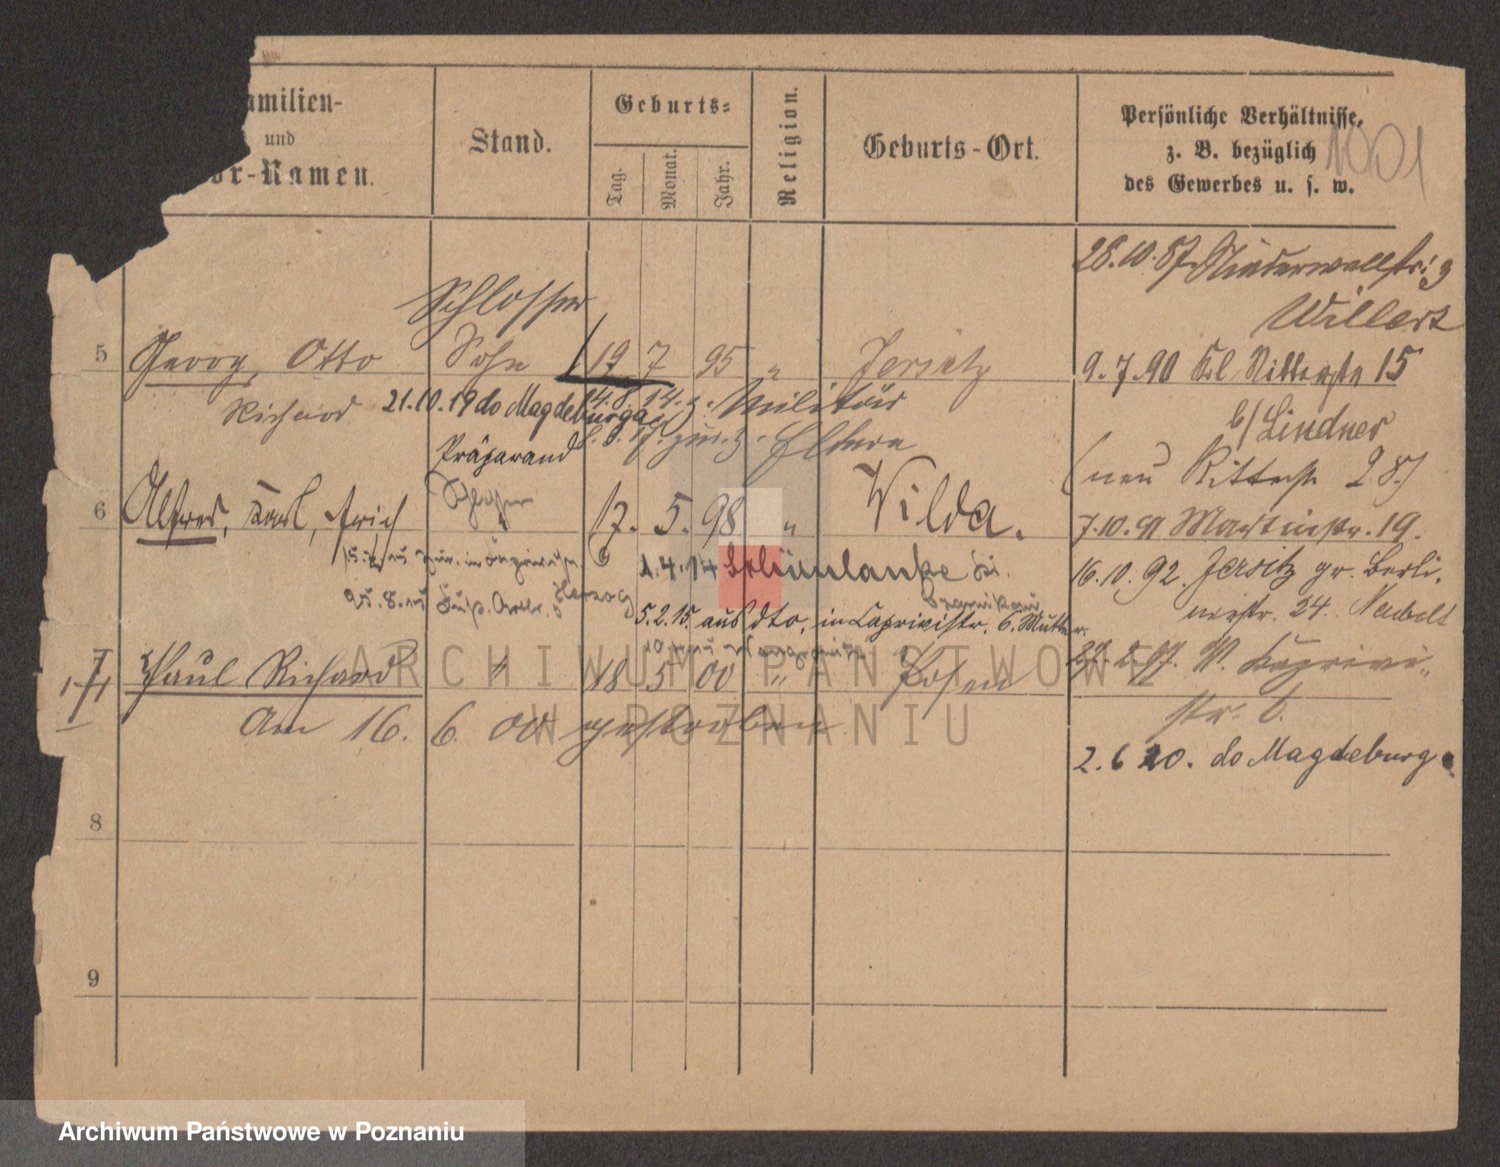 amilien-
und
or-Namen.
Stand.
Geburts-
Tag.
Monat.
Jahr.
Religion.
Geburts-Ort.
Persönliche Verhältnisse,
z. B. bezüglich
des Gewerbes u. s. w.
28.10.87 Niederwallstr. 9
Willert
Schlosser
5 Georg, Otto Sohn 19 7 95 " Jersitz
Richard
9.7.90 Kl Ritterstr 15
b/Lindner
21.10.19 do Magdeburg
14.8.14. z. Militär
zur. z. Eltern
(neu Ritterstr 28)
Präparand
Schlosser
6 Alfred, Karl, Erich 17. 5. 98 " Wilda.
7.10.91 Martinstr. 19.
1.4.14 Schönlanke
16.10.92. Jersitz gr. Berli-
nerstr. 24.
Herzog
5.2.15. aus dto, in Caprivistr. 6. Mutter.
7 Paul Richard " 18 5 00 " Posen
W. Caprivi-
str. 6.
Am 16. 6. 00 gestorben
2.6 20. do Magdeburg.
8
9
ARCHIWUM PAŃSTWOWE
W POZNANIU
Archiwum Państwowe w Poznaniu